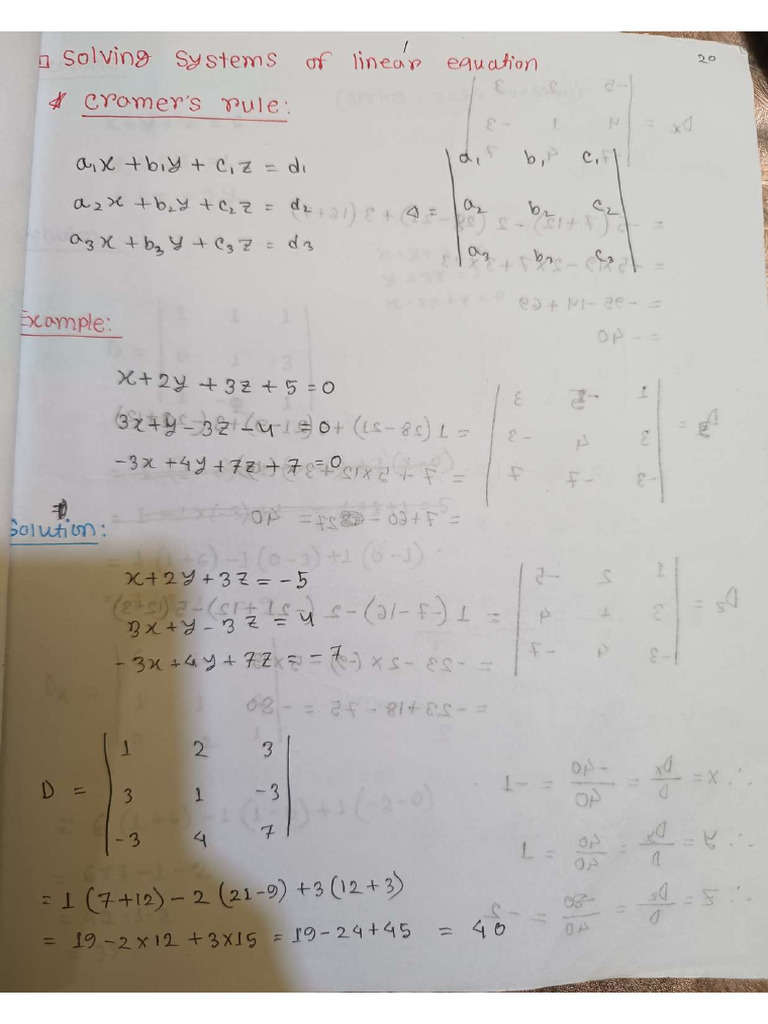 Solving systems of linear equation
20
Cramer's rule:
a₁x + b₁y + c₁z = d₁
a₂x + b₂y + c₂z = d₂
a₃x + b₃y + c₃z = d₃
Δ = | a₁ b₁ c₁ |
| a₂ b₂ c₂ |
| a₃ b₃ c₃ |
Example:
x + 2y + 3z + 5 = 0
3x + y - 3z - 4 = 0
-3x + 4y + 7z + 7 = 0
Solution:
x + 2y + 3z = -5
3x + y - 3z = 4
-3x + 4y + 7z = -7
D = | 1 2 3 |
| 3 1 -3 |
| -3 4 7 |
= 1 (7+12) - 2 (21-9) + 3 (12+3)
= 19 - 2×12 + 3×15 = 19 - 24 + 45 = 40